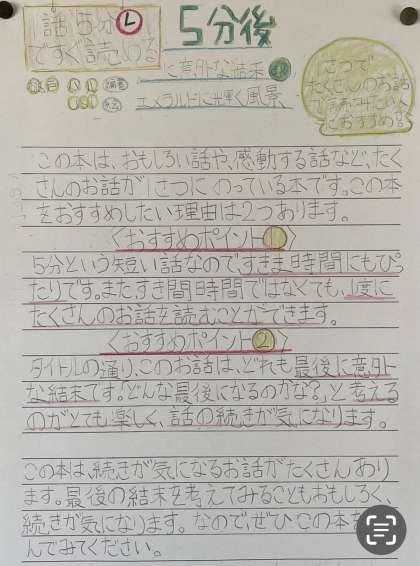 話 5分
ですぐ読みわる
5分後
に意外な結末
エメラルドに輝く風景
1さつで
たくさんのお話
におすすめ
この本は、おもしろい話や、感動する話など、たく
さんのお話が1さつにのっている本です。この本
をおすすめしたい理由は2つあります。
〈おすすめポイント①〉
5分という短い話なので、すきま時間にもぴっ
たりです。またすき間時間ではなくても、1度に
たくさんのお話を読むことができます。
〈おすすめポイント②〉
タイトルの通り、このお話は、どれも最後に意外
な結末です。「どんな最後になるのかな?」と考える
のがとても楽しく、話の続きが気になります。
この本は、続きが気になるお話がたくさんあり
ます。最後の結末を考えてみることもおもしろく、
続きが気になります。なので、ぜひこの本を
んでみてください。